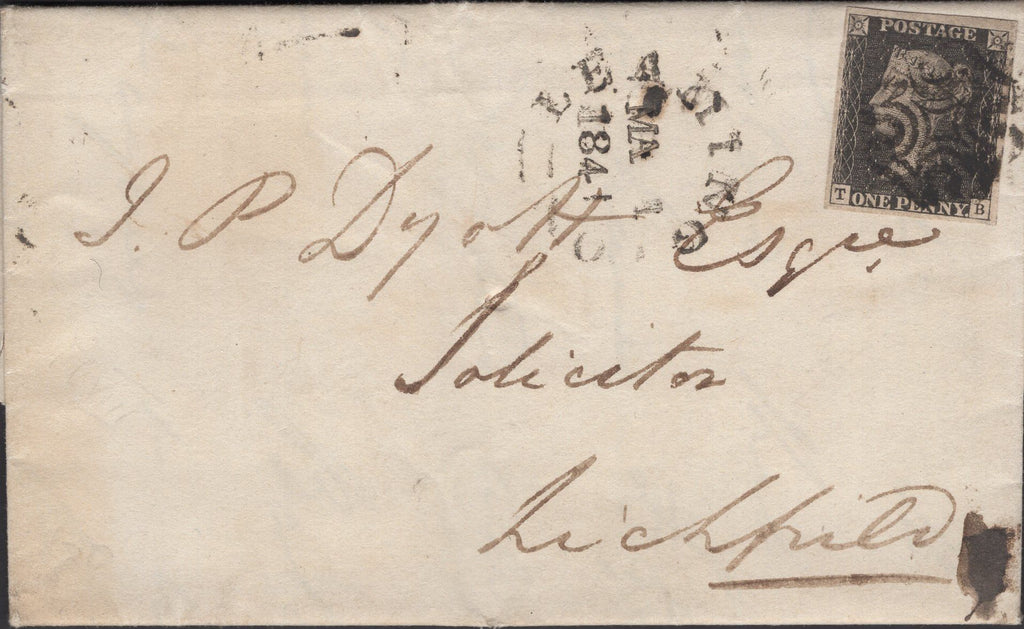 POSTAGE
T ONE PENNY B
MA
184
J. P Dyott Esqre
Solicitor
Lichfield